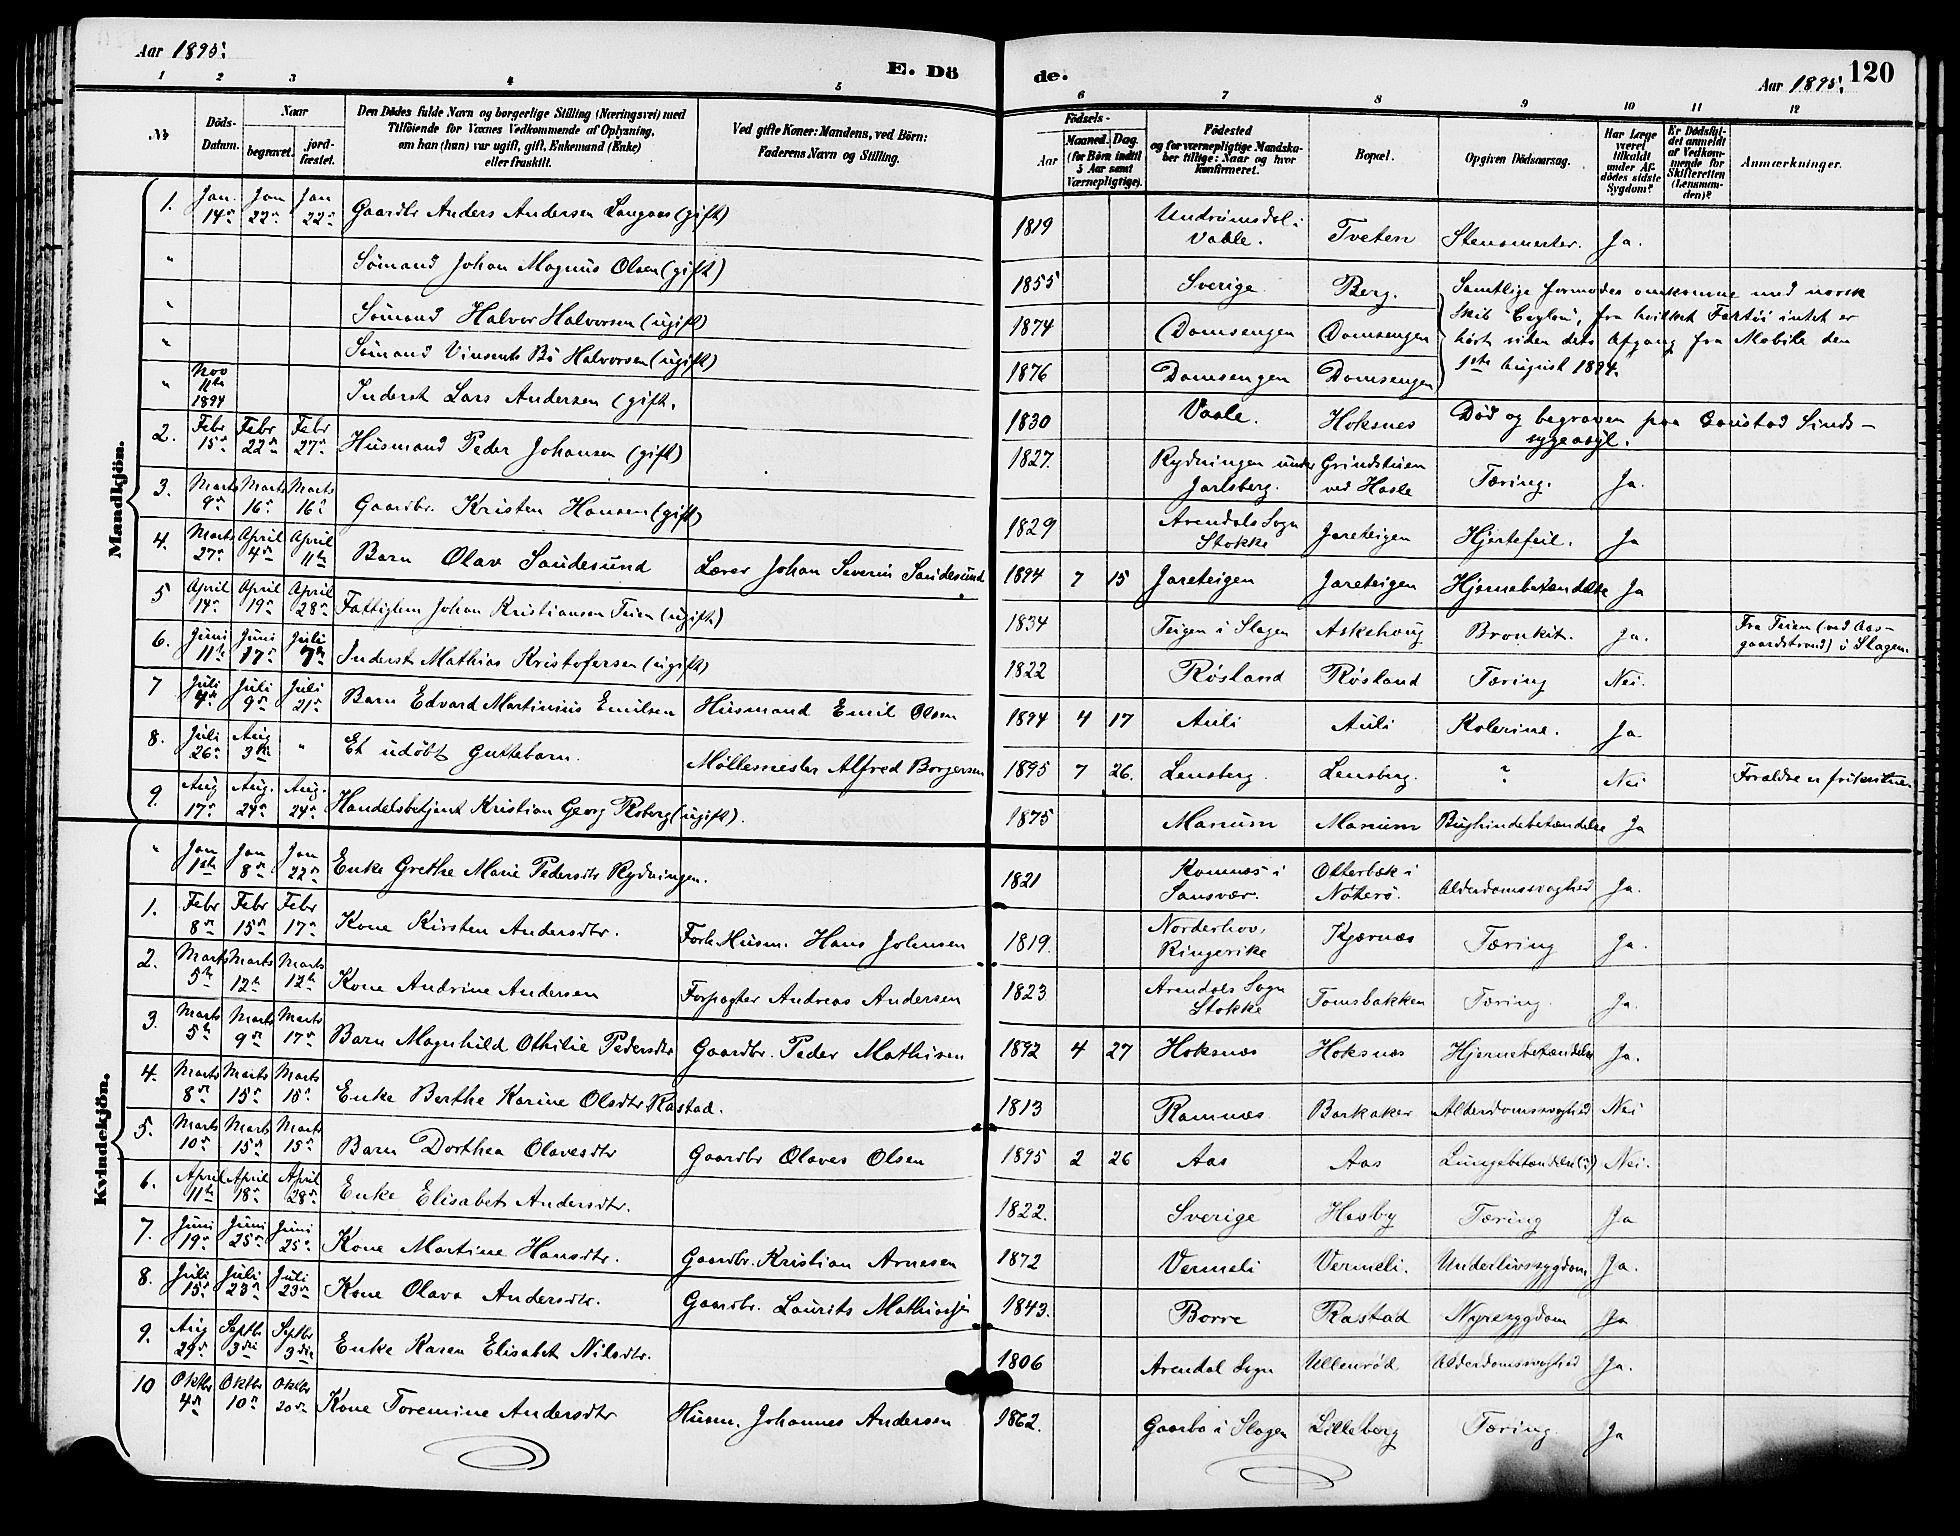 Aar 1895. E. Dö
de. Aar 1895. 120
1 2 3 4 5
6 7 8 9 10 11 12
No
Döds-Datum.
Naar
begravet.
jordfæstet.
Den Dödes fulde Navn og borgerlige Stilling (Næringsvei) med
Tilföiende for Voxnes Vedkommende af Oplysning,
om han (hun) var ugift, gift, Enkemand (Enke)
eller fraskilt.
Ved gifte Koner: Mandens, ved Börn:
Faderens Navn og Stilling.
Födsels-
Aar
Maaned. Dag.
(for Börn indtil
5 Aar samt
Værnepligtige).
Födested
og for værnepligtige Mandskaber tillige: Naar og hvor
konfirmeret.
Bopæl.
Opgiven Dödsaarsag.
Har Læge
været
tilkaldt
under Afdödes sidste
Sygdom?
Er Dödsfaldet anmeldt
af Vedkommende for
Skifteretten
(Lensmanden)?
Anmærkninger.
Mandkjön.
1. Jan. 14de Jan 22de Jan 22de Gaardbr Anders Andersen Langaas (gift) 1819 Undrumsdal i Vaale. Tveten Stensmerter. Ja.
" Sömand Johan Magnus Olsen (gift) 1855 Sverige Berg. Samtlige formodes omkomne med norsk
" Sömand Halvor Halvorsen (ugift) 1874 Domsengen Domsengen Skib "Ceylon", fra hvilket Fartöi intet er
" Sömand Vinsents Bö Halvorsen (ugift) 1876 Domsengen Domsengen hört siden dets Afgang fra Mobile den
1ste August 1894.
" Nov 11te 1894 Inderst Lars Andersen (gift. 1830 Vaale. Hoksnes Död og begraven paa Gaustad Sindssygeasyl.
2. Febr 15de Febr 22de Febr 27de Husmand Peder Johansen (gift) 1827. Rydningen under Jarlsberg. Grindstuen ved Hasle Tæring. Ja.
3. Marts 9de Marts 16de Marts 16de Gaardbr. Kristen Hansen (gift) 1829 Arendals Sogn Stokke Jareteigen Hjertefeil. Ja
4. Marts 27de April 4de April 11te Barn Olav Sandesund Lærer Johan Severin Sandesund 1894 7 15 Jareteigen Jareteigen Hjernebetændelse Ja
5 April 14de April 19de April 28de Fattiglem Johan Kristiansen Teien (ugift) 1834 Teigen i Slagen Askehoug Bronkit. Ja. Fra Teien (ved Aasgaardstrand) i Slagen.
6. Juni 11te Juni 17de Juli 7de Inderst Mathias Kristofersen (ugift) 1822 Røsland Røsland Tæring Nei.
7 Juli 4de Juli 9de Juli 21de Barn Edvard Martinius Emilsen Husmand Emil Olsen 1894 4 17 Auli Auli Kolerine. Ja
8. Juli 26de Aug 3die " Et udöbt Guttebarn. Møllemester Alfred Borgersen 1895 7 26. Lensberg. Lensberg. ? Nei Forældre er frikristne
9. Aug 17de Aug. 24de Aug. 24de Handelsbetjent Kristian Georg Roberg (ugift). 1875 Manum Manum Bughindebetændelse Ja
Kvindekjön.
" Jan 1ste Jan 8de Jan 22de Enke Grethe Marie Pedersdtr Rydningen. 1821 Komnæs i Sansvær. Otterbæk i Nøterö. Alderdomssvaghed Ja.
1. Febr 8de Febr 15de Febr 17de Kone Kirsten Andersdtr. Forh. Husm. Hans Johnsen 1819. Norderhov, Ringerike Kjærnæs Tæring Ja.
2. Marts 5te Marts 12te Marts 12te Kone Andrine Andersen Forpagter Andreas Andersen 1823 Arendals Sogn Stokke Tomsbakken Tæring. Ja.
3. Marts 5te Marts 9de Marts 17de Barn Magnhild Othilie Pedersdtr Gaardbr. Peder Mathisen 1892 4 27 Hoksnæs Hoksnæs Hjernebetændelse Ja.
4. Marts 8de Marts 15de Marts 15de Enke Berthe Karine Olsdtr Rastad. 1813 Ramnæs. Barkaker Alderdomssvaghed Nei
5. Marts 10de Marts 15de Marts 15de Barn Dorthea Olavesdtr Gaardbr Olaves Olsen 1895 2 26 Aas Aas Lungebetændelse (?) Nei.
6. April 11te April 18de April 28de Enke Elisabet Andersdtr. 1822. Sverige Hesby Tæring Ja
7. Juni 19de Juni 25de Juni 25de Kone Martine Hansdtr. Gaardbr. Kristian Arnesen 1872 Vermeli Vermeli. Underlivssygdom Ja.
8. Juli 15de Juli 23de Juli 23de Kone Olava Andersdtr. Gaardbr. Laurits Mathiassen 1843. Borre Rastad Nyresygdom Ja
9. Aug 29de Septbr 3die Septbr 3die Enke Karen Elisabet Nilsdtr. 1806 Arendal Sogn Ullenrød Alderdomssvaghed Ja.
10 Oktbr 4de Oktbr 10de Oktbr 20de Kone Toremine Andersdtr Husm. Johannes Andersen 1862. Gaarbo i Slagen Lilleberg Tæring. Ja